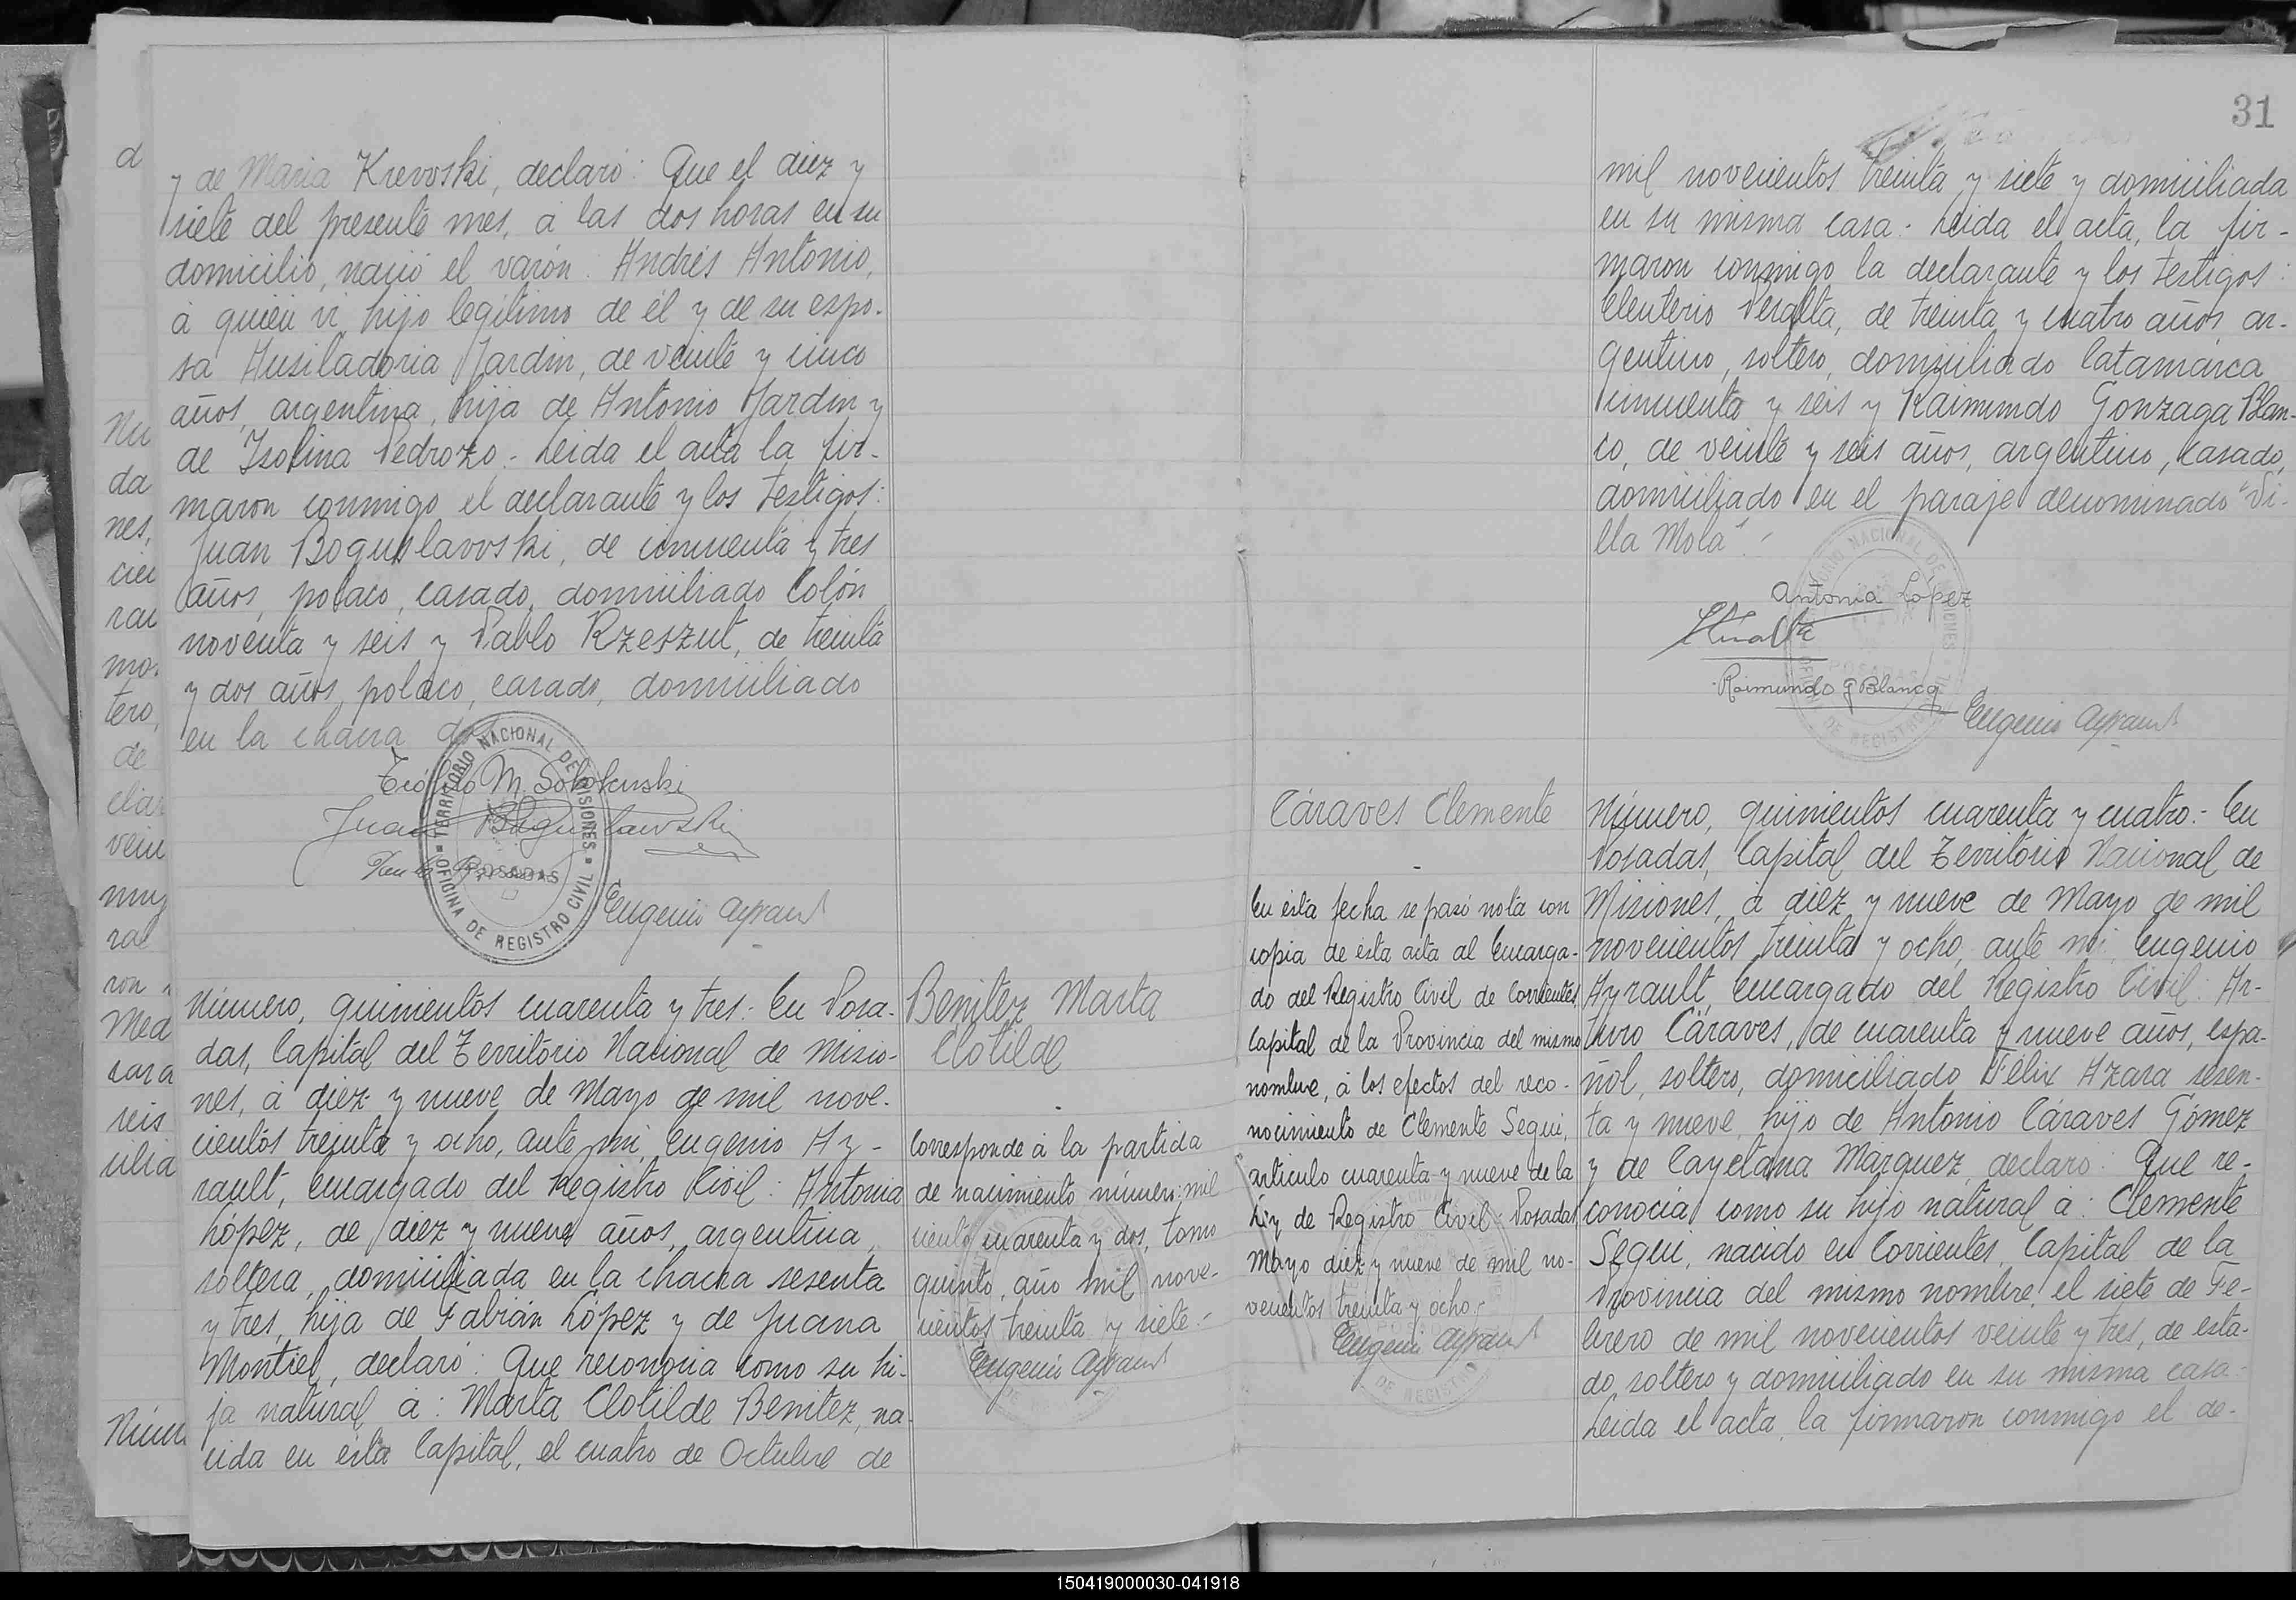 y de Maria Krevoski, declaró: Que el diez y
siete del presente mes, á las dos horas en su
domicilio, nació el varón: Andrés Antonio,
á quién vi, hijo legítimo de él y de su espo-
sa Ausiladoria Jardin, de veinte y cinco
años, argentina, hija de Antonio Jardin y
de Isolina Pedrozo.- Leida el acta la fir-
maron conmigo el declarante y los testigos:
Juan Boguslavoski, de cincuenta y tres
años, polaco, casado, domiciliado Colón
noventa y seis y Pablo Rzeszut, de treinta
y dos años, polaco, casado, domiciliado
en la chacra
Teófilo M. Sokoluski
Juan Boguslawski
TERRITORIO NACIONAL DE MISIONES
POSADAS
OFICINA DE REGISTRO CIVIL
Eugenio Ayrault
Número, quinientos cuarenta y tres:- En Posa-
das, Capital del Território Nacional de Misio-
nes, á diez y nueve de Mayo de mil nove-
cientos treinta y ocho, ante mi, Eugenio Ay-
rault, Encargado del Registro Civil: Antonia
López, de diez y nueve años, argentina,
soltera, domiciliada en la chacra sesenta
y tres, hija de Fabián López y de Juana
Montiel, declaró: Que reconocia como su hi-
ja natural á: Marta Clotilde Benitez, na-
cida en esta Capital, el cuatro de Octubre de
Benitez Marta
Clotilde
Corresponde á la partida
de nacimiento número: mil
ciento cuarenta y dos, tomo
quinto, año mil nove-
cientos treinta y siete.-
Eugenio Ayrault
31
mil novecientos treinta y siete y domiciliada
en su misma casa.- Leida el acta, la fir-
maron conmigo la declarante y los testigos:
Eleuterio Peralta, de treinta y cuatro años, ar-
gentino, soltero, domiciliado Catamarca
cincuenta y seis y Raimundo Gonzaga Blan-
co, de veinte y seis años, argentino, casado,
domiciliado en el paraje denominado "Vi-
lla Mola".-
Antonia López
Raimundo G Blanco
Eugenio Ayrault
Cáraves Clemente
En esta fecha se pasó nota con
copia de esta acta al Encarga-
do del Registro Civil de Corrientes,
Capital de la Provincia del mismo
nombre, á los efectos del reco-
nocimiento de Clemente Segui,
artículo cuarenta y nueve de la
Ley de Registro Civil. Posadas
Mayo diez y nueve de mil no-
vecientos treinta y ocho.-
Eugenio Ayrault
Número, quinientos cuarenta y cuatro:- En
Posadas, Capital del Território Nacional de
Misiones, á diez y nueve de Mayo de mil
novecientos treinta y ocho, ante mi, Eugenio
Ayrault, Encargado del Registro Civil: Ar-
turo Cáraves, de cuarenta y nueve años, espa-
ñol, soltero, domiciliado Félix Azara sesen-
ta y nueve, hijo de Antonio Cáraves Gómez
y de Cayetana Márquez, declaró: Que re-
conocia como su hijo natural á: Clemente
Segui, nacido en Corrientes, Capital de la
Provincia del mismo nombre, el siete de Fe-
brero de mil novecientos veinte y tres, de esta-
do soltero y domiciliado en su misma casa.-
Leida el acta, la firmaron conmigo el de-
150419000030-041918